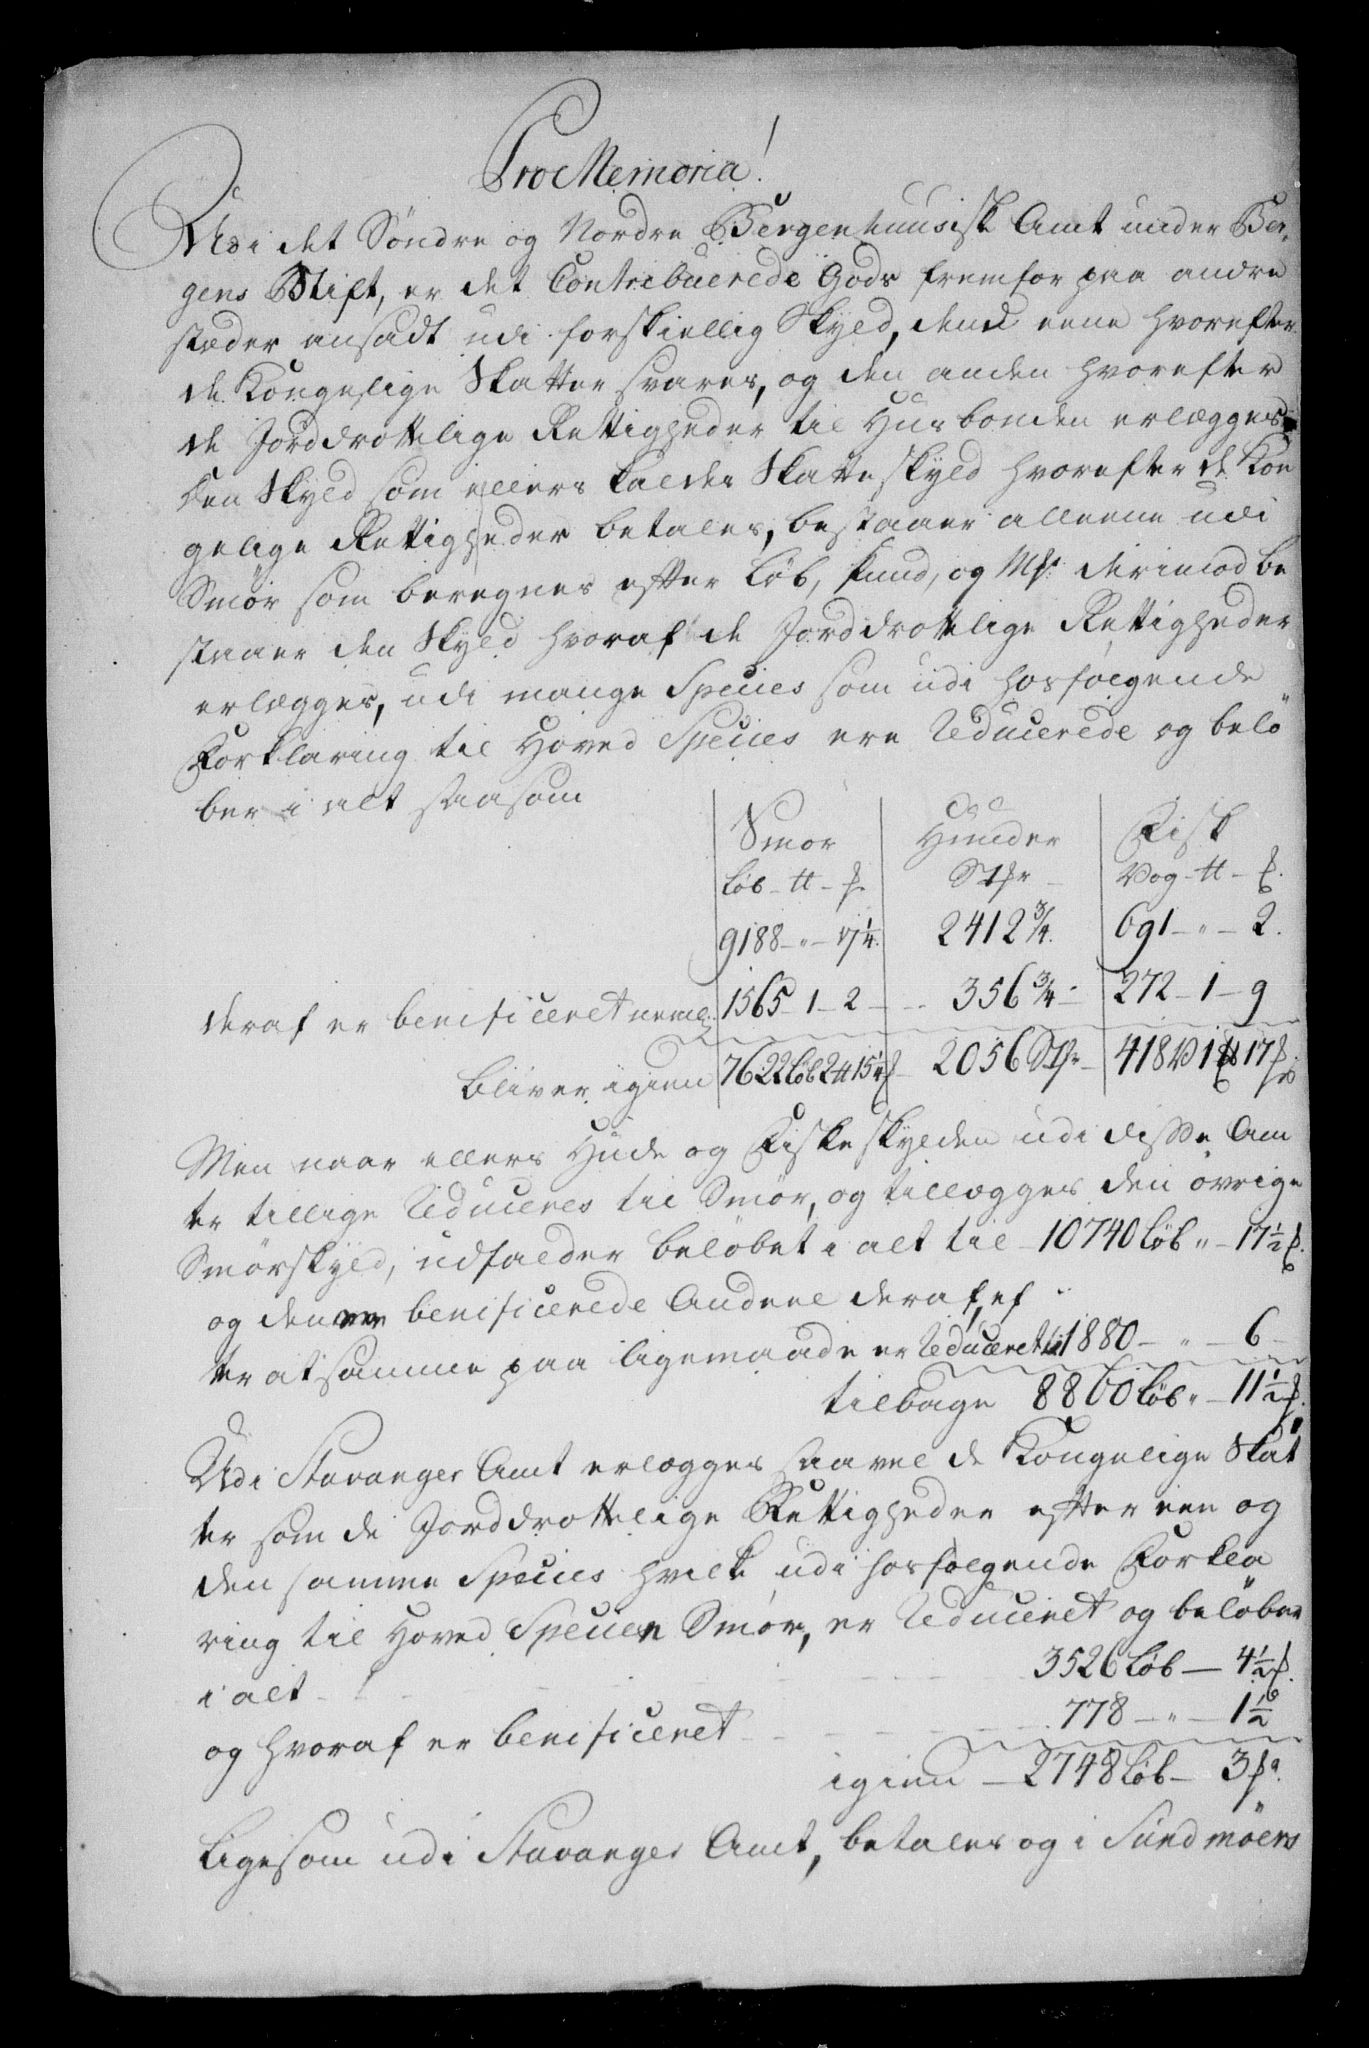 Pro Memoria!
Udi det Söndre og Nordre Bergenhuusisk Amt under Ber,
gens Stift, er det Contribuerede Gods fremfor paa andre
stæder ansadt udi forskiellig Skyld, dend eene hvorefter
de Kongelige Skatter svares, og den anden hvorefter
de Jorddrottelige Rettigheder til Husbonden erlægges
den Skyld som ellers kaldes Skatteskyld hvorefter de Kon
gelige Rettigheder betales, bestaaer alleene udi
Smör som beregnes efter Löb, Pund, og Mk: derimod be
staaer den Skyld hvoraf de Jorddrottelige Rettigheder
erlægges, udi mange Species som udi hosfölgende
Forklaring til Hoved Species ere Reducerede og belö
ber i alt saasom
Smör Huuder Fisk
Löb - tt - Stkr Vog - tt -
9188 - " - 17¼. 2412¾. 691 - " - 2.
deraf er beneficeret neml: 1565 - 1 - 2 - 356¾ - 272 - 1 - 9
bliver igien 7622 Löb 2 tt 15¼ 2056 Stkr - 418 V 1 17
Men naar ellers Hude og Fiske skylden udi disse Am
ter tillige Reduceres til Smör, og tillægges den övrige
Smörskyld, udfalder belöbet i alt til - 10740 Löb " - 17½
og den benificerede Andeel deraf, ef
ter at samme paa ligemaade er Reduceret til 1880 - " - 6 -
tilbage 8860 Löb " - 11½
Udi Stavanger Amt erlægges saavel de Kongelige Skat
ter som de Jorddrottelige Rettigheder efter een og
den samme Species hvilk udi hosfölgende Forkla
ring til Hoved Specien Smör, er Reduceret og belöber
i alt - 3526 Löb - 4½
og hvoraf er benificeret - 778 - " - 1½
igien - 2748 Löb - 3
Ligesom udi Stavanger Amt, betales og i Sundmöers